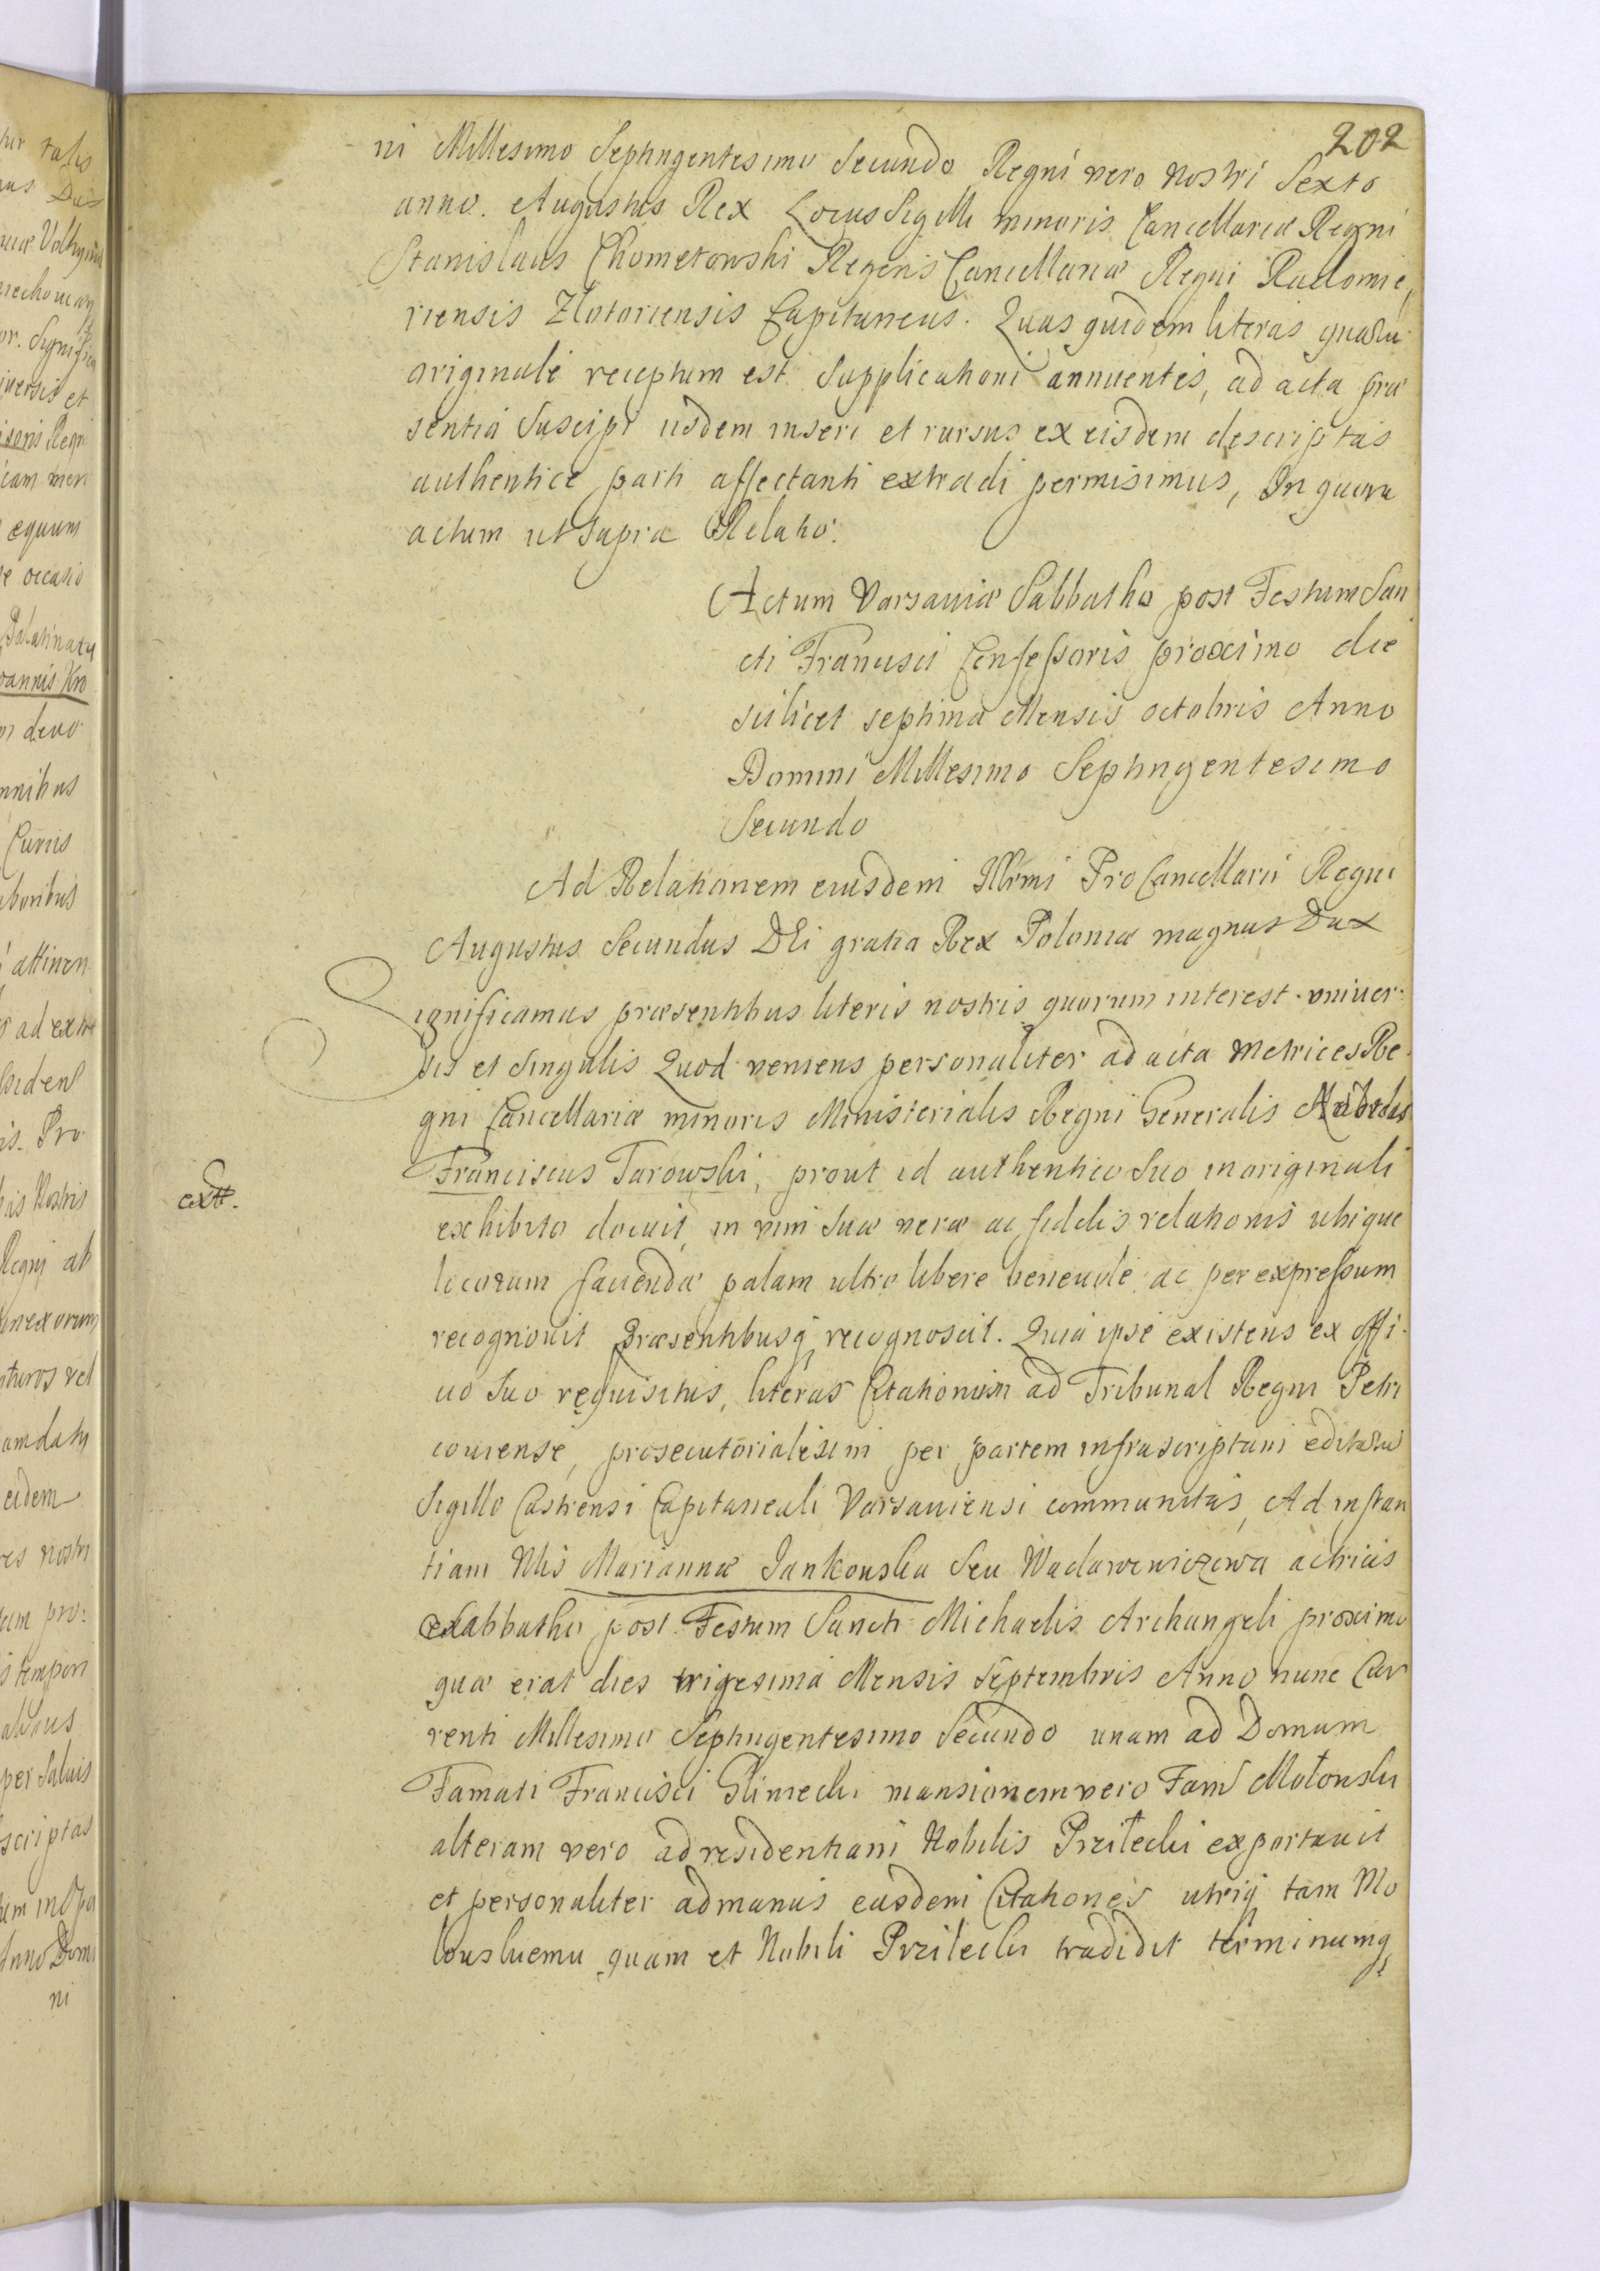 202
ni Millesimo Septingentesimo Secundo Regni vero nostri Sexto
anno. Augustus Rex Locus Sigilli minoris Cancellariæ Regni
Stanislaus Chometowski Regens Cancellariæ Regni Radomie,
riensis Zlotoriensis Capitaneus. Quas quidem literas quaru
originale receptum est Supplicationi annuentes, ad acta præ
sentia Suscipi iisdem inseri et rursus ex eisdem descriptas
authentice parti affectanti extradi permisimus, In quoru
actum ut supra Relatio.
Actum Varsaviæ Sabbatho post Festum San
cti Francisci Confessoris proximo die
scilicet septima Mensis octobris Anno
Domini Millesimo Septingentesimo
Secundo
Ad Relationem eiusdem Illrmi ProCancellarii Regni
Augustus Secundus DEi gratia Rex Poloniæ magnus Dux
Significamus præsentibus literis nostris quorum interest univer
sis et singulis Quod veniens personaliter ad acta Metrices Re
gni Cancellariæ minoris Ministerialis Regni Generalis
Franciscus Tarowski, prout id authentico suo in originali
ext.
exhibito docuit, in vim suæ veræ ac fidelis relationis ubique
locorum faciendæ palam ultro libere benevole ac per expressum
recognovit præsentibusq recognoscit. Quia ipse existens ex offi
cio suo requisitus, literas Citationum ad Tribunal Regni Petri
coviense, prosecutorialesim per partem infrascriptam editaru
Sigillo Castrensi Capitaneali Varsaviensi communitas, Ad instan
tiam Nlis Mariannæ Jankowska seu actricis
Sabbatho post Festum Sancti Michaelis Archangeli proximo
quæ erat dies trigesima Mensis Septembris Anno nunc Cur
renti Millesimo Septingentesimo Secundo unam ad Domum
Famati Francisci mansionem vero Fam Motonski
alteram vero ad residentiam Nobilis Przilecki exportavit
et personaliter ad manus easdem Citationes utriq tam Mo
quam et Nobili Przilecki tradidit terminumq